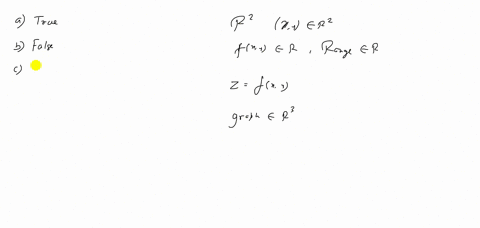 a) True
b) False
c)
R² (x,y) ∈ R²
f(x,y) ∈ R , Range ∈ R
z = f(x,y)
graph ∈ R³